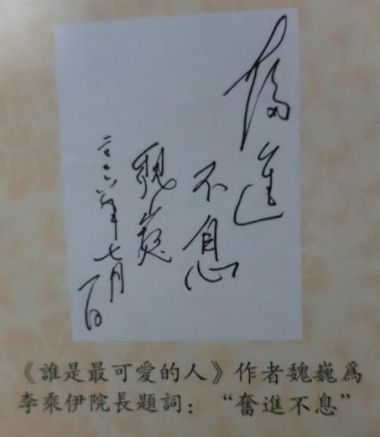 奮進
不息
魏巍
年七月一日
《誰是最可愛的人》作者魏巍為
李乘伊院長題詞：“奮進不息”